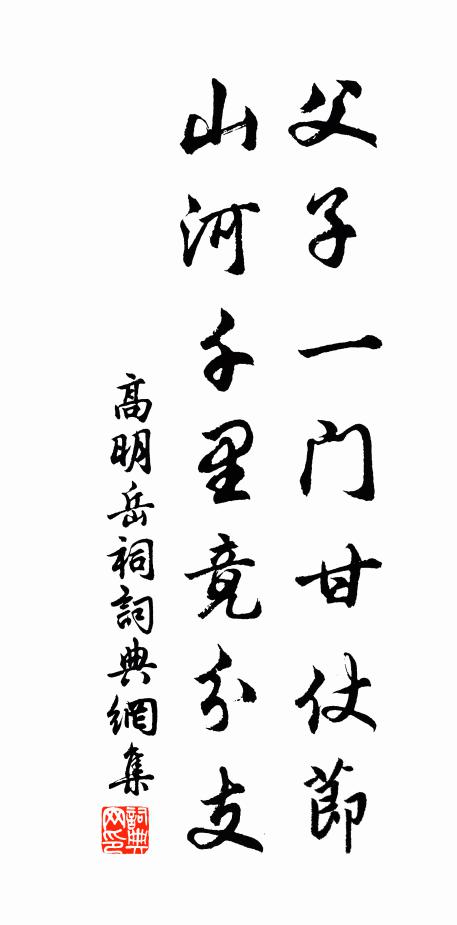 父子一门甘仗節
山河千里竟分支
高明岳祠詞典網集
詞典网印